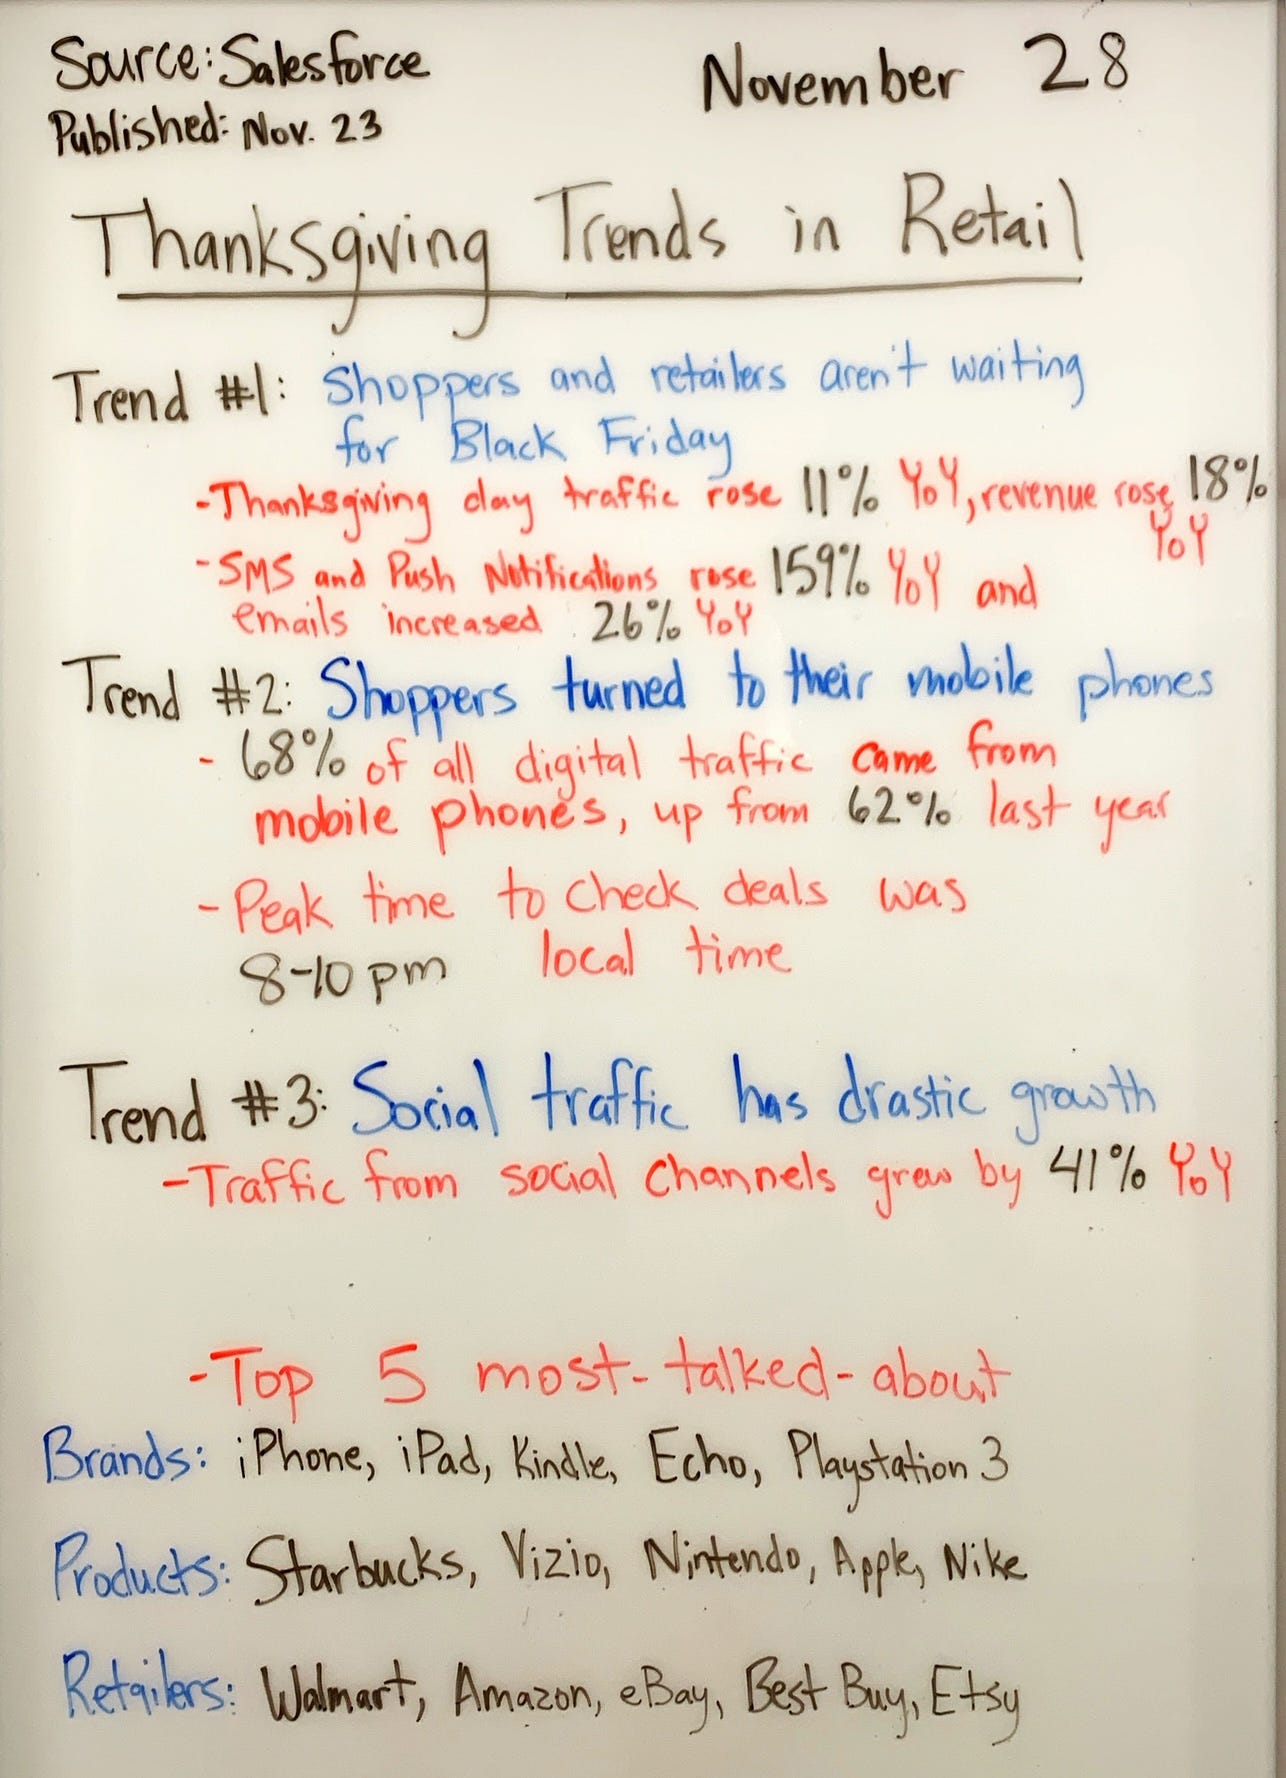 Source: Salesforce
November 28
Published: Nov. 23
Thanksgiving Trends in Retail
Trend #1: Shoppers and retailers aren't waiting
for Black Friday
-Thanksgiving day traffic rose 11% YoY, revenue rose 18%
YoY
-SMS and Push Notifications rose 159% YoY and
emails increased 26% YoY
Trend #2: Shoppers turned to their mobile phones
- 68% of all digital traffic came from
mobile phones, up from 62% last year
- Peak time to check deals was
8-10 pm local time
Trend #3: Social traffic has drastic growth
-Traffic from social channels grew by 41% YoY
-Top 5 most-talked-about
Brands: iPhone, iPad, Kindle, Echo, Playstation 3
Products: Starbucks, Vizio, Nintendo, Apple, Nike
Retailers: Walmart, Amazon, eBay, Best Buy, Etsy